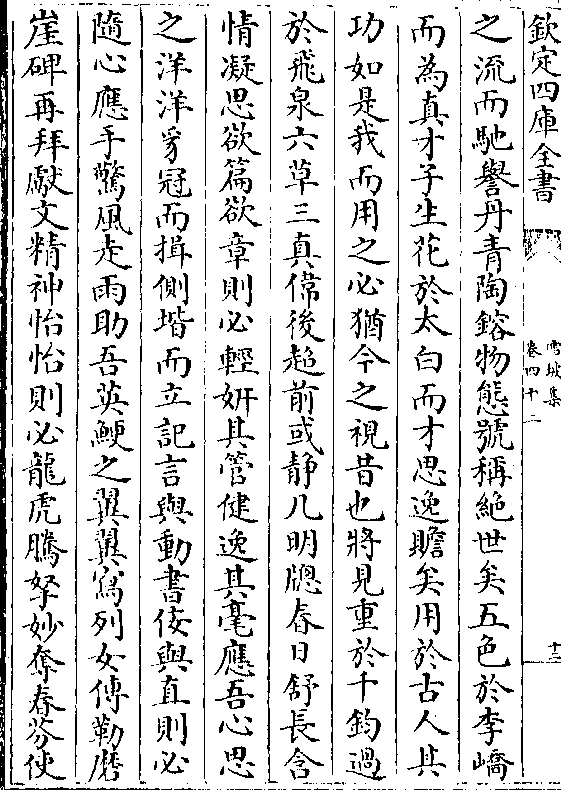 欽定四庫全書
雪坡集
卷四十二
十二
之流而馳譽丹青陶鎔物態號稱絶世矣五色於李嶠
而為真才子生花於太白而才思逸贍矣用於古人其
功如是我而用之必猶今之視昔也將見重於千鈞過
於飛泉六草三真偉後超前或静几明牕春日舒長含
情凝思欲篇欲章則必輕妍其管健逸其毫應吾心思
之洋洋豸冠而揖側堦而立記言與動書佞與直則必
隨心應手驚風走雨助吾英鯁之翼翼寫列女傳勒磨
崖碑再拜獻文精神怡怡則必龍虎騰拏妙奪春芬使